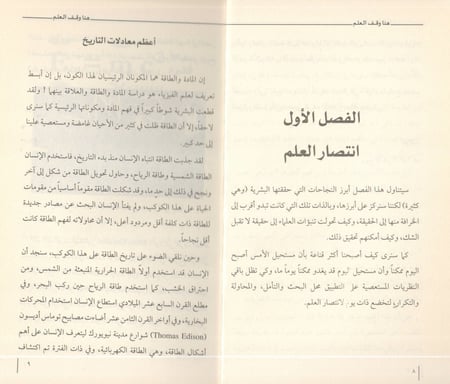 هنا وقف العلم
الفصل الأول
انتصار العلم
سيتناول هذا الفصل أبرز النجاحات التي حققتها البشرية (وهي
كثيرة) لكننا سنركز على أبرزها، وبالذات تلك التي كانت تبدو أقرب إلى
الخرافة منها إلى الحقيقة، وكيف تحولت تنبؤات العلماء إلى حقيقة لا تقبل
الشك، وكيف أمكنهم تحقيق ذلك.
كما سنرى كيف أصبحنا أكثر قناعة بأن مستحيل الأمس أصبح
اليوم ممكناً وأن مستحيل اليوم قد يغدو ممكناً يوماً ما، وكي تظل باقي
النظريات المستعصية على التطبيق محل البحث والتأمل، والمحاولة
والتكرار، لتخضع ذات يوم.. لانتصار العلم.
٨
هنا وقف العلم
أعظم معادلات التاريخ
إن المادة والطاقة هما المكونان الرئيسيان لهذا الكون، بل إن أبسط
تعريف لعلم الفيزياء هو دراسة المادة والطاقة والعلاقة بينهما! ولقد
قطعت البشرية شوطاً كبيراً في فهم المادة ومكوناتها الرئيسية كما سنرى
لاحقاً، إلا أن الطاقة ظلت في كثير من الأحيان غامضة ومستعصية علينا
إلى حد كبير.
لقد جذبت الطاقة انتباه الإنسان منذ بدء التاريخ، فاستخدم الإنسان
الطاقة الشمسية وطاقة الرياح، وحاول تحويل الطاقة من شكل إلى آخر
ونجح في ذلك إلى حد ما، وقد شكلت الطاقة مقوماً أساسياً من مقومات
الحياة على هذا الكوكب، ولم يفتأ الإنسان البحث عن مصادر جديدة
للطاقة ذات كلفة أقل ومردود أعلى، إلا أن محاولاته لفهم الطاقة كانت
أقل نجاحاً.
وحين نلقي الضوء على تاريخ الطاقة على هذا الكوكب، سنجد أن
الإنسان قد استخدم أولاً الطاقة الحرارية المنبعثة من الشمس، ومن
احتراق الخشب، كما استخدم طاقة الرياح حين ركب البحر، وفي
مطلع القرن السابع عشر الميلادي استطاع الإنسان استخدام المحركات
البخارية، وفي أواخر القرن الثامن عشر أضاءت مصابيح توماس أديسون
(Thomas Edison) شوارع مدينة نيويورك ليتعرف الإنسان على أهم
أشكال الطاقة، وهي الطاقة الكهربائية، وفي ذات الفترة تم اكتشاف
٩